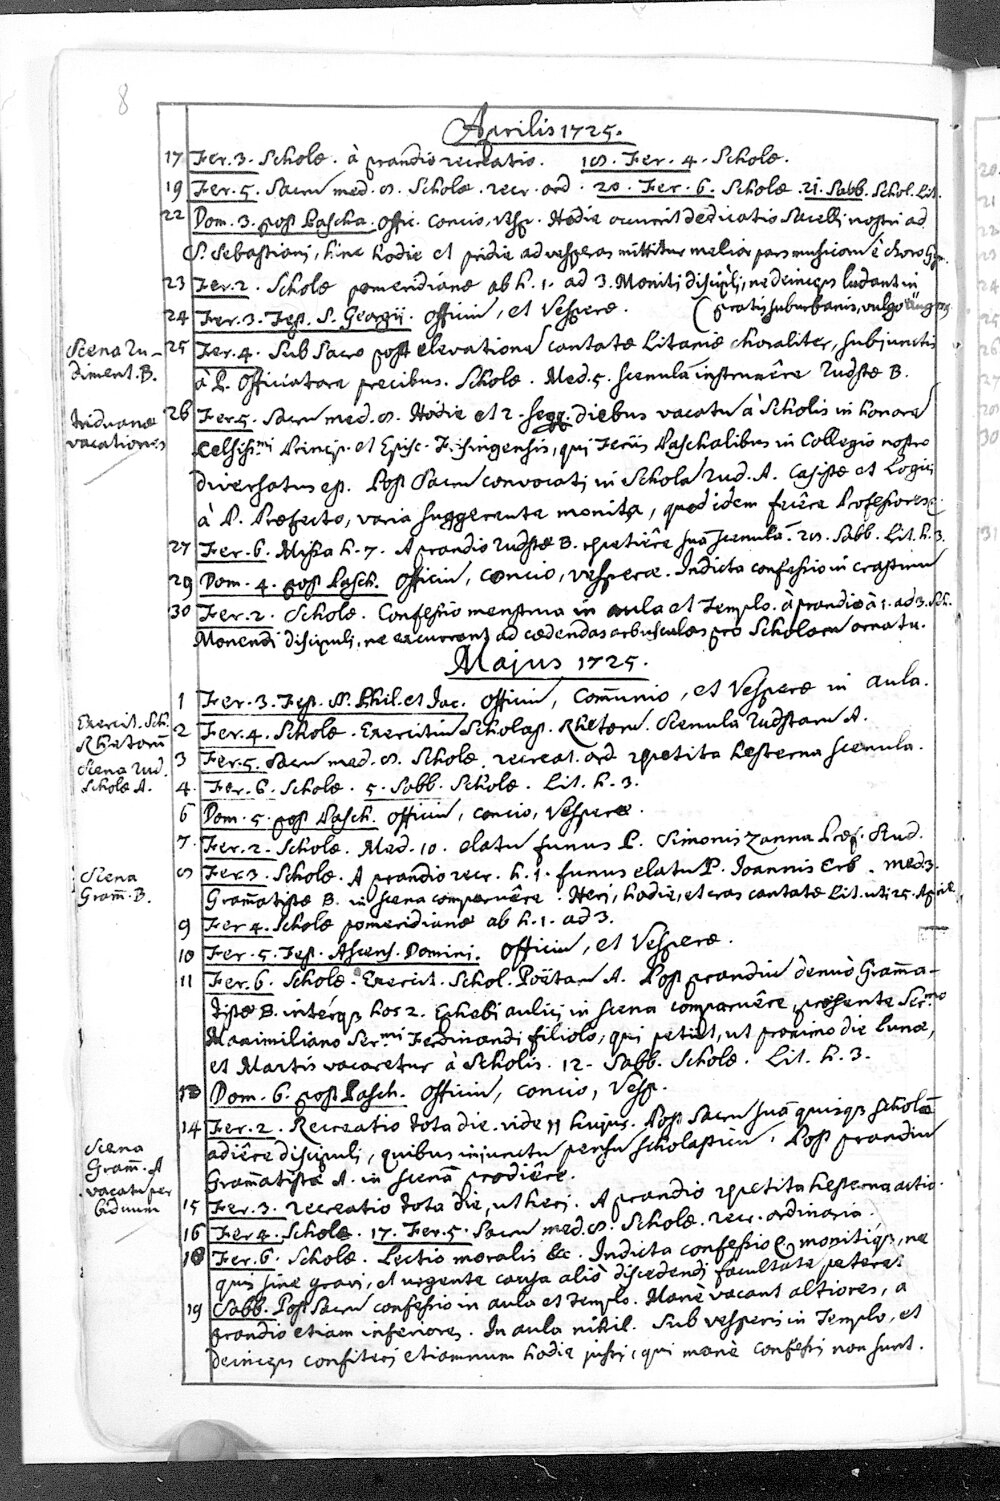 8
Aprilis 1725.
17 Fer. 3. Scholæ. à prandio recreatio. 18. Fer. 4. Scholæ.
19 Fer. 5. Sacrum med. 8. Scholæ. recr. ord. 20. Fer. 6. Scholæ. 21. Sabb. Schol. Lit.
22 Dom. 3. post Pascha. Offic. Concio, Vesp. Hodie occurrit dedicatio Sacelli nostri ad
S. Sebastiani, hinc hodie et pridie ad vesperas mittitur melior pars musicorum è choro
23 Fer. 2. Scholæ pomeridianæ ab h. 1. ad 3. Moniti discipuli, ne deinceps ludant in
(pratis suburbanis, vulgo
24 Fer. 3. Fest. S. Georgii. Officium, et Vesperæ.
Scena Ru-
diment. B.
25 Fer. 4. Sub Sacro post elevationem cantatæ Litaniæ choraliter, subjunctis
à P. Officiatore precibus. Scholæ. Med. 5. scenulam instruxêre Rudistæ B.
Triduanæ
vacationes
26 Fer. 5. Sacrum med. 8. Hodie et 2. segg. diebus vacatum à Scholis in honorem
Celsiss:mi Princip. et Episc. Frisingensis, qui Feriis Paschalibus in Collegio nostro
diversatus est. Post Sacrum convocati in Schola Rud. A. Casistæ et Logici
à P. Præfecto, varia suggerente monita, quod idem fecêre Professores.
27 Fer. 6. Missa h. 7. A prandio Rudistæ B. repetiêre suam scenulam. 28. Sabb. Lit. h. 3.
29 Dom. 4. post Pasch. Officium, concio, vesperæ. Indicta confessio in crastinum
30 Fer. 2. Scholæ. Confessio menstrua in aula et Templo. à prandio à 1. ad 3. Sch.
Monendi discipuli, ne excurrant ad cædendas arbusculas pro Scholarum ornatu.
Majus 1725.
1 Fer. 3. Fest. SS. Phil. et Jac. Officium, Com̃unio, et Vesperæ in aula.
Exercit. Sch.
Rhetorũ
2 Fer. 4. Scholæ. Exercitium Scholast. Rhetorum. Scenula Rudistarum A.
Scena Rud.
Scholæ A.
3 Fer. 5. Sacrum med. 8. Scholæ. recreat. ord. repetita hesterna scenula.
4. Fer. 6. Scholæ. 5. Sabb. Scholæ. Lit. h. 3.
6 Dom. 5. post Pasch. Officium, concio, Vesperæ.
7. Fer. 2. Scholæ. Med. 10. elatum funus P. Simonis Zanna Præf. Stud.
8 Fer. 3. Scholæ. A prandio recr. h. 1. funus elatum P. Joannis Erb. med. 3.
Scena
Gram̃. B.
Gram̃atistæ B. in scena comparuêre. Heri, hodie, et cras cantatæ Lit. uti 25. Aprilis.
9 Fer. 4. Scholæ pomeridianæ ab h. 1. ad 3.
10 Fer. 5. Fest. Ascens. Domini. Officium, et Vesperæ.
11 Fer. 6. Scholæ. Exercit. Schol. Poëtarum A. Post prandium denuò Gram̃a-
tistæ B. interque hos 2. Ephebi aulici in scena comparuêre, præsente Ser:mo
Maximiliano Ser:mi Ferdinandi filiolo, qui petiit, ut proximo die Lunæ,
et Martis vacaretur à Scholis. 12. Sabb. Scholæ. Lit. h. 3.
13 Dom. 6. post Pasch. Officium, concio, Vesp.
14 Fer. 2. Recreatio tota die. vide 11 hujus. Post Sacrum suam quisque Scholam
adiêre discipuli, quibus injunctum pensum scholasticum. Post prandium
Scena
Gram̃. A
vacatum per
biduum
Gram̃atistæ A. in scenam prodiêre.
15 Fer. 3. recreatio tota die, ut heri. A prandio repetita hesterna actio.
16 Fer. 4. Scholæ. 17. Fer. 5. Sacrum med. 8. Scholæ. recr. ordinaria.
18 Fer. 6. Scholæ. Lectio moralis &c. Indicta confessio monitique, ne
quis sine gravi, et urgente causa aliò discedendi facultatem peteret.
19 Sabb. Post Sacrum confessio in aula et Templo. Manè vacant altiores, a
prandio etiam inferiores. In aula nihil. Sub vesperis in Templo, et
deinceps confiteri etiamnum hodie jussi, qui manè confessi non sunt.